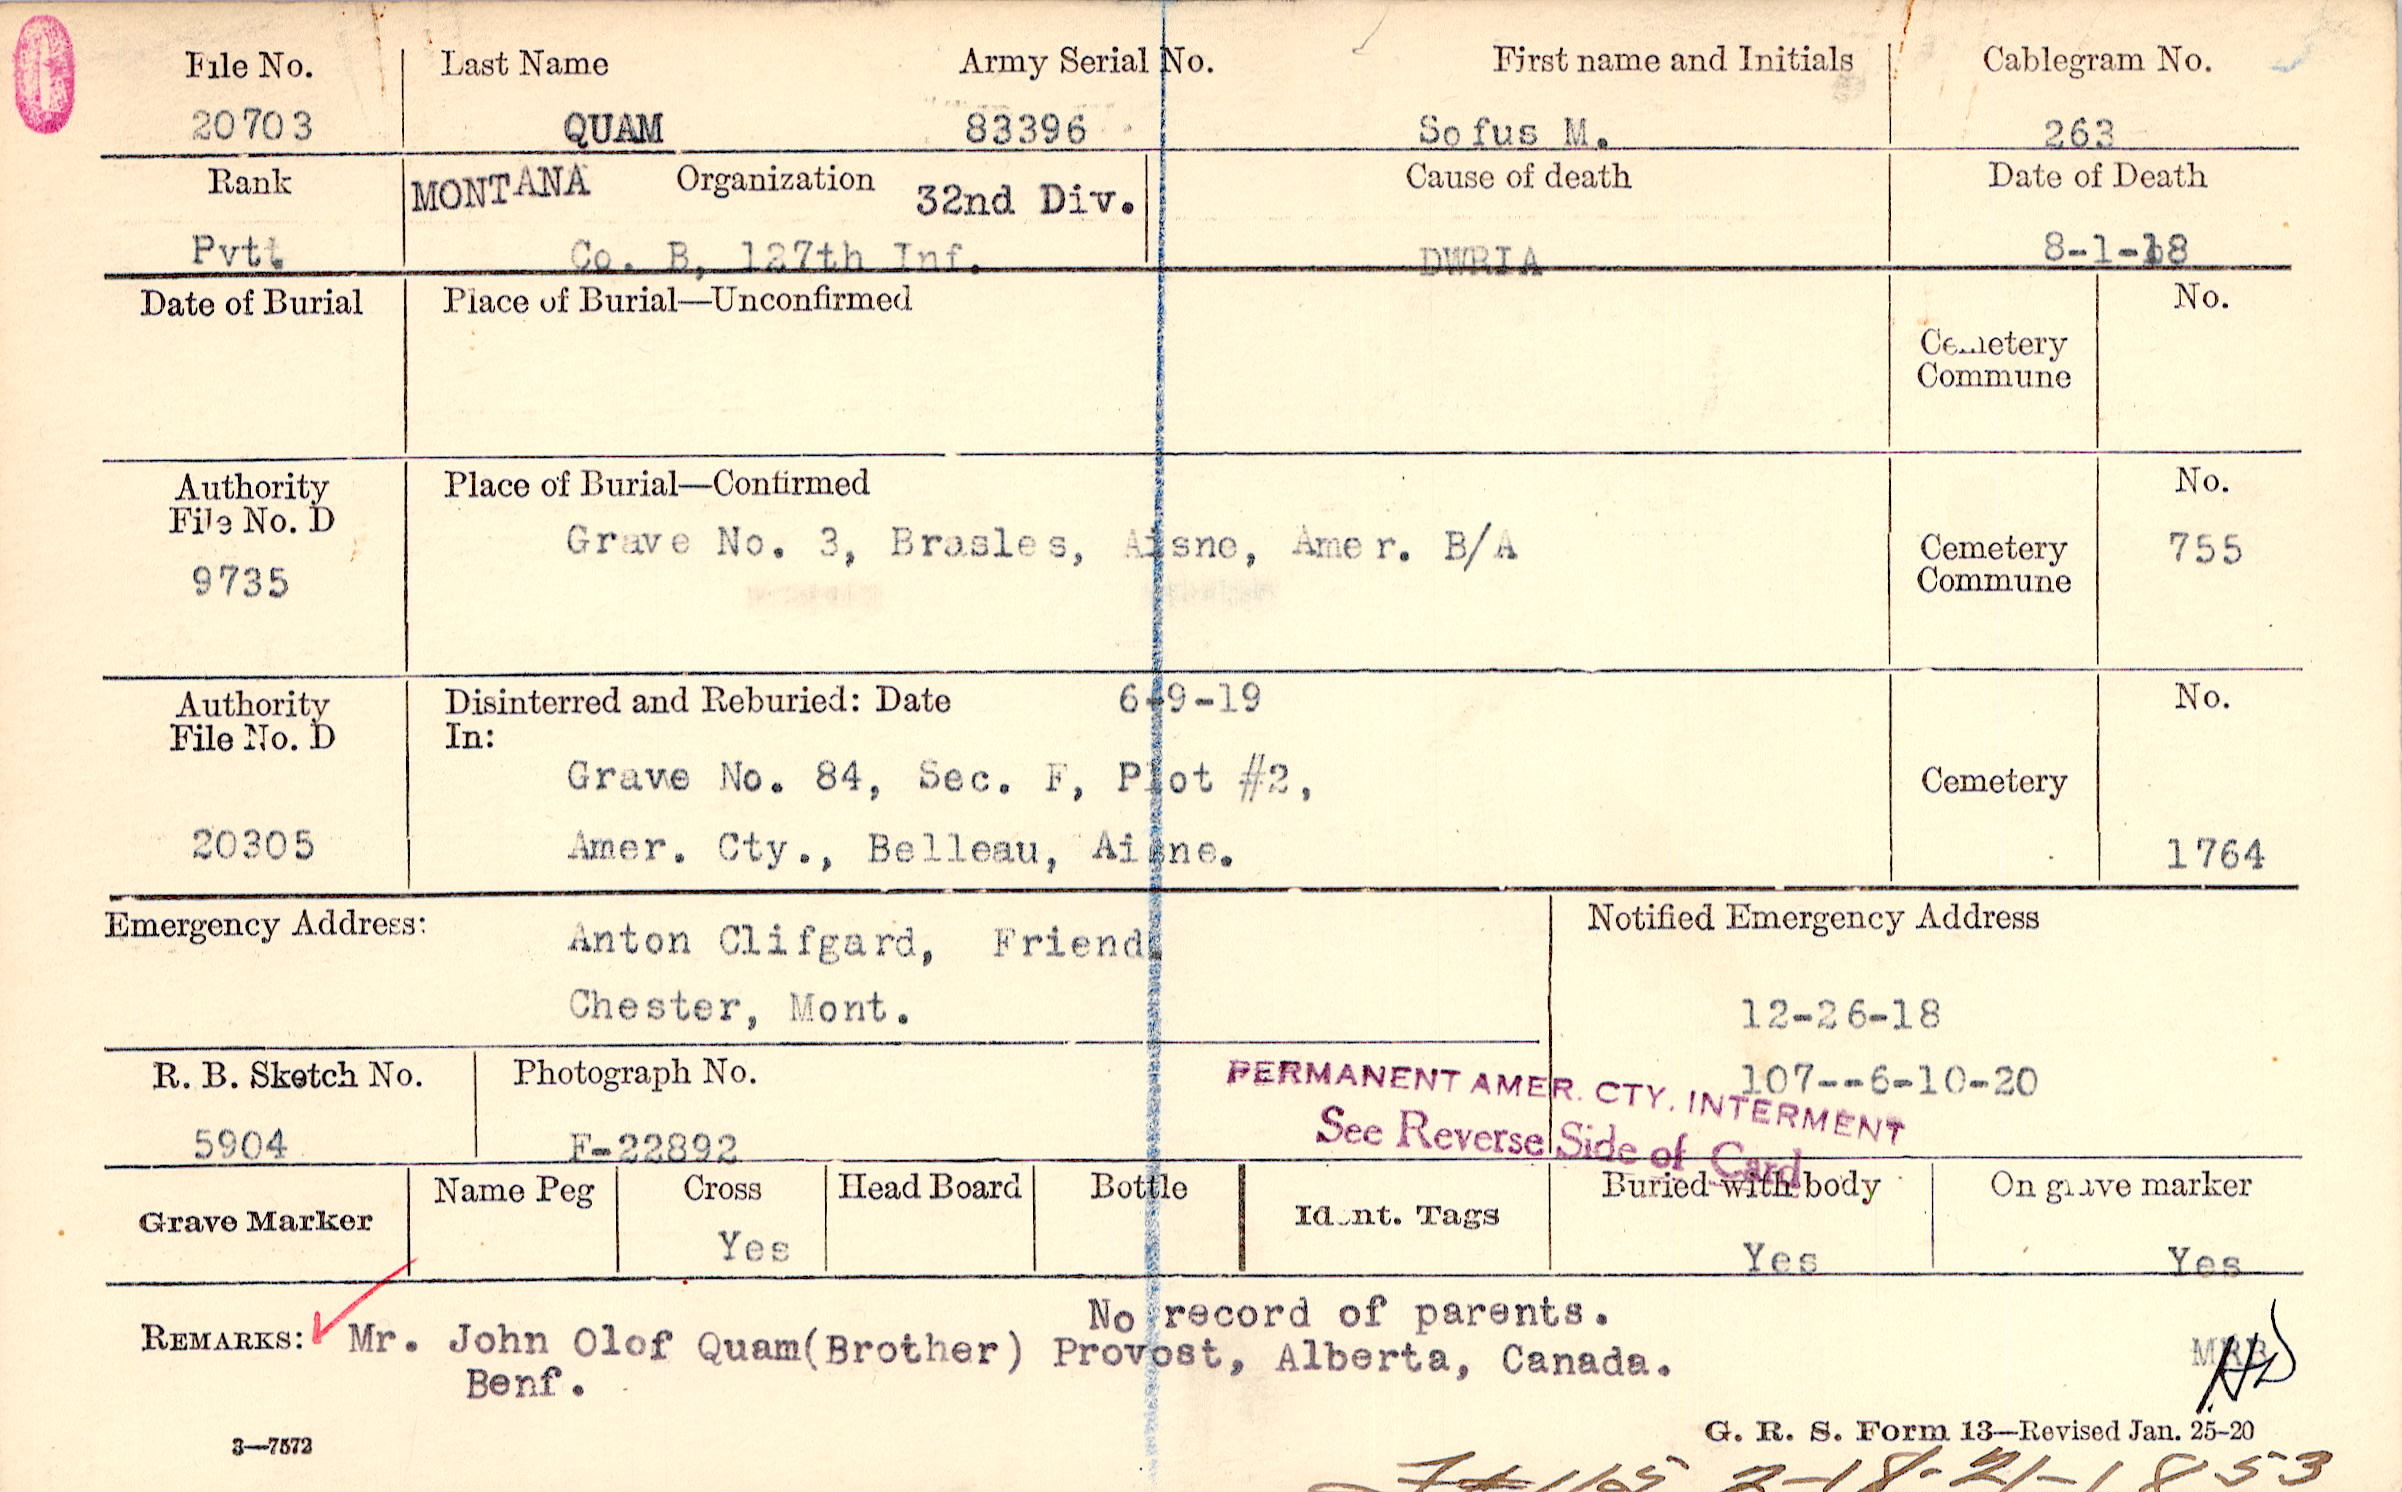 File No. Last Name Army Serial No. First name and Initials Cablegram No.
20703 QUAM 83396 Sofus M. 263
Rank MONTANA Organization 32nd Div. Cause of death Date of Death
Pvt. Co. B, 127th Inf. DWRIA 8-1-18
Date of Burial Place of Burial—Unconfirmed No.
Cemetery
Commune
Authority Place of Burial—Confirmed No.
File No. D
Grave No. 3, Brasles, Aisne, Amer. B/A Cemetery 755
9735 Commune
Authority Disinterred and Reburied: Date 6-9-19 No.
File No. D In:
Grave No. 84, Sec. F, Plot #2, Cemetery
20305 Amer. Cty., Belleau, Aisne. 1764
Emergency Address: Anton Clifgard, Friend. Notified Emergency Address
Chester, Mont. 12-26-18
R. B. Sketch No. Photograph No. 107--6-10-20
PERMANENT AMER. CTY. INTERMENT
See Reverse Side of Card
5904 F-22892
Grave Marker Name Peg Cross Head Board Bottle Ident. Tags Buried with body On grave marker
Yes Yes Yes
No record of parents.
REMARKS: Mr. John Olof Quam(Brother) Provost, Alberta, Canada. MRB
Benf. HD
3—7572 G. R. S. Form 13—Revised Jan. 25-20
2-18-21-1853